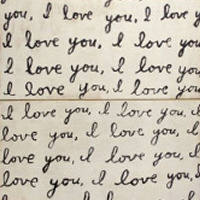 you, I love you, I love
I love you, I love you
I love you, I love you
I love you, I love you,
I love you, I love you, I
love you, I love you, I
love you, I love you, I
love you, I love you, I